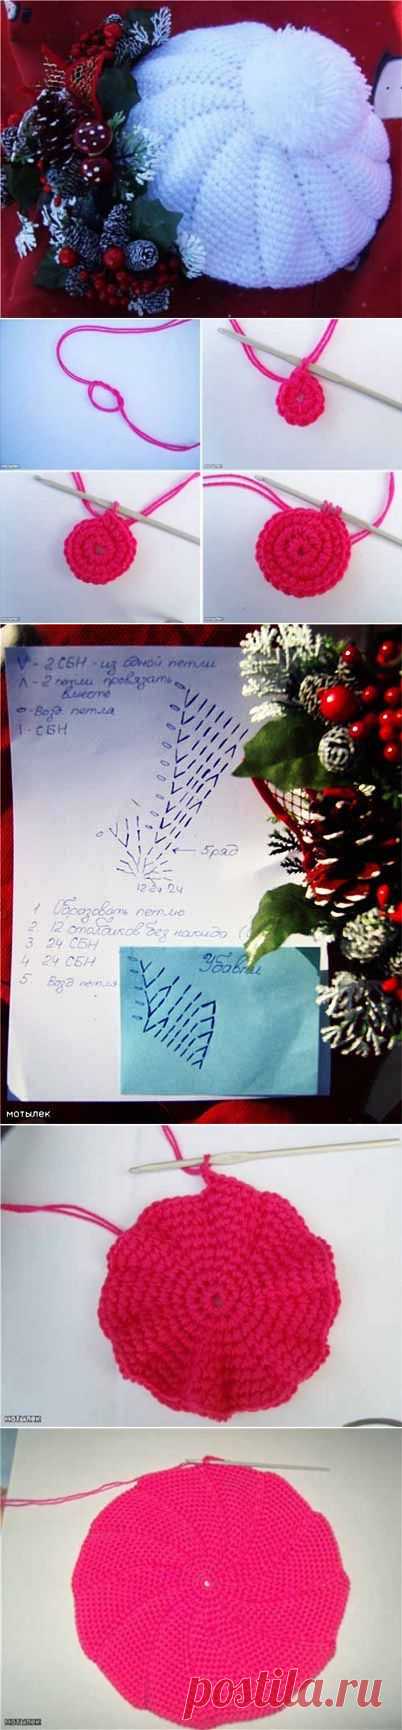 мотылек
мотылек
мотылек
мотылек
V - 2 СБН - из одной петли
Λ - 2 петли провязать
вместе
о - Возд. петля
I - СБН
5 ряд
12 24 24
1 Образовать петлю
2. 12 столбиков без накида (
3 24 СБН
4 24 СБН
5 Возд петля
Убавки
мотылек
мотылек
мотылек
postila.ru